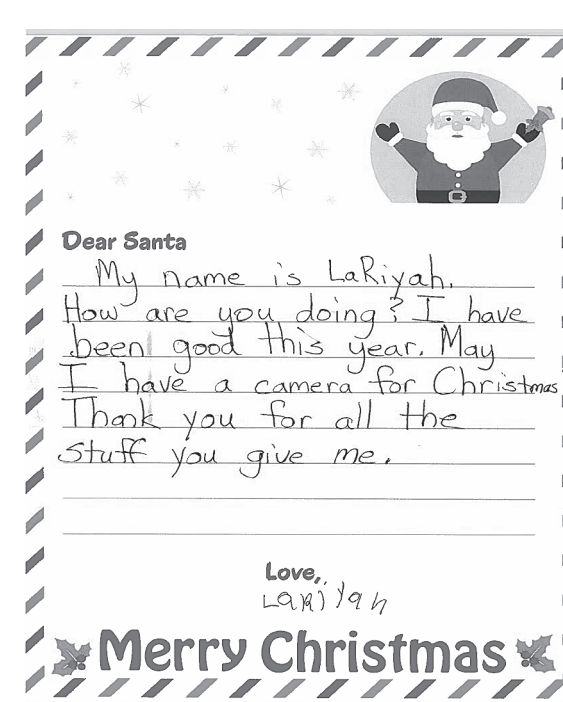 Dear Santa
My name is LaRiyah.
How are you doing? I have
been good this year. May
I have a camera for Christmas
Thank you for all the
stuff you give me.
Love,
LaRiyah
Merry Christmas